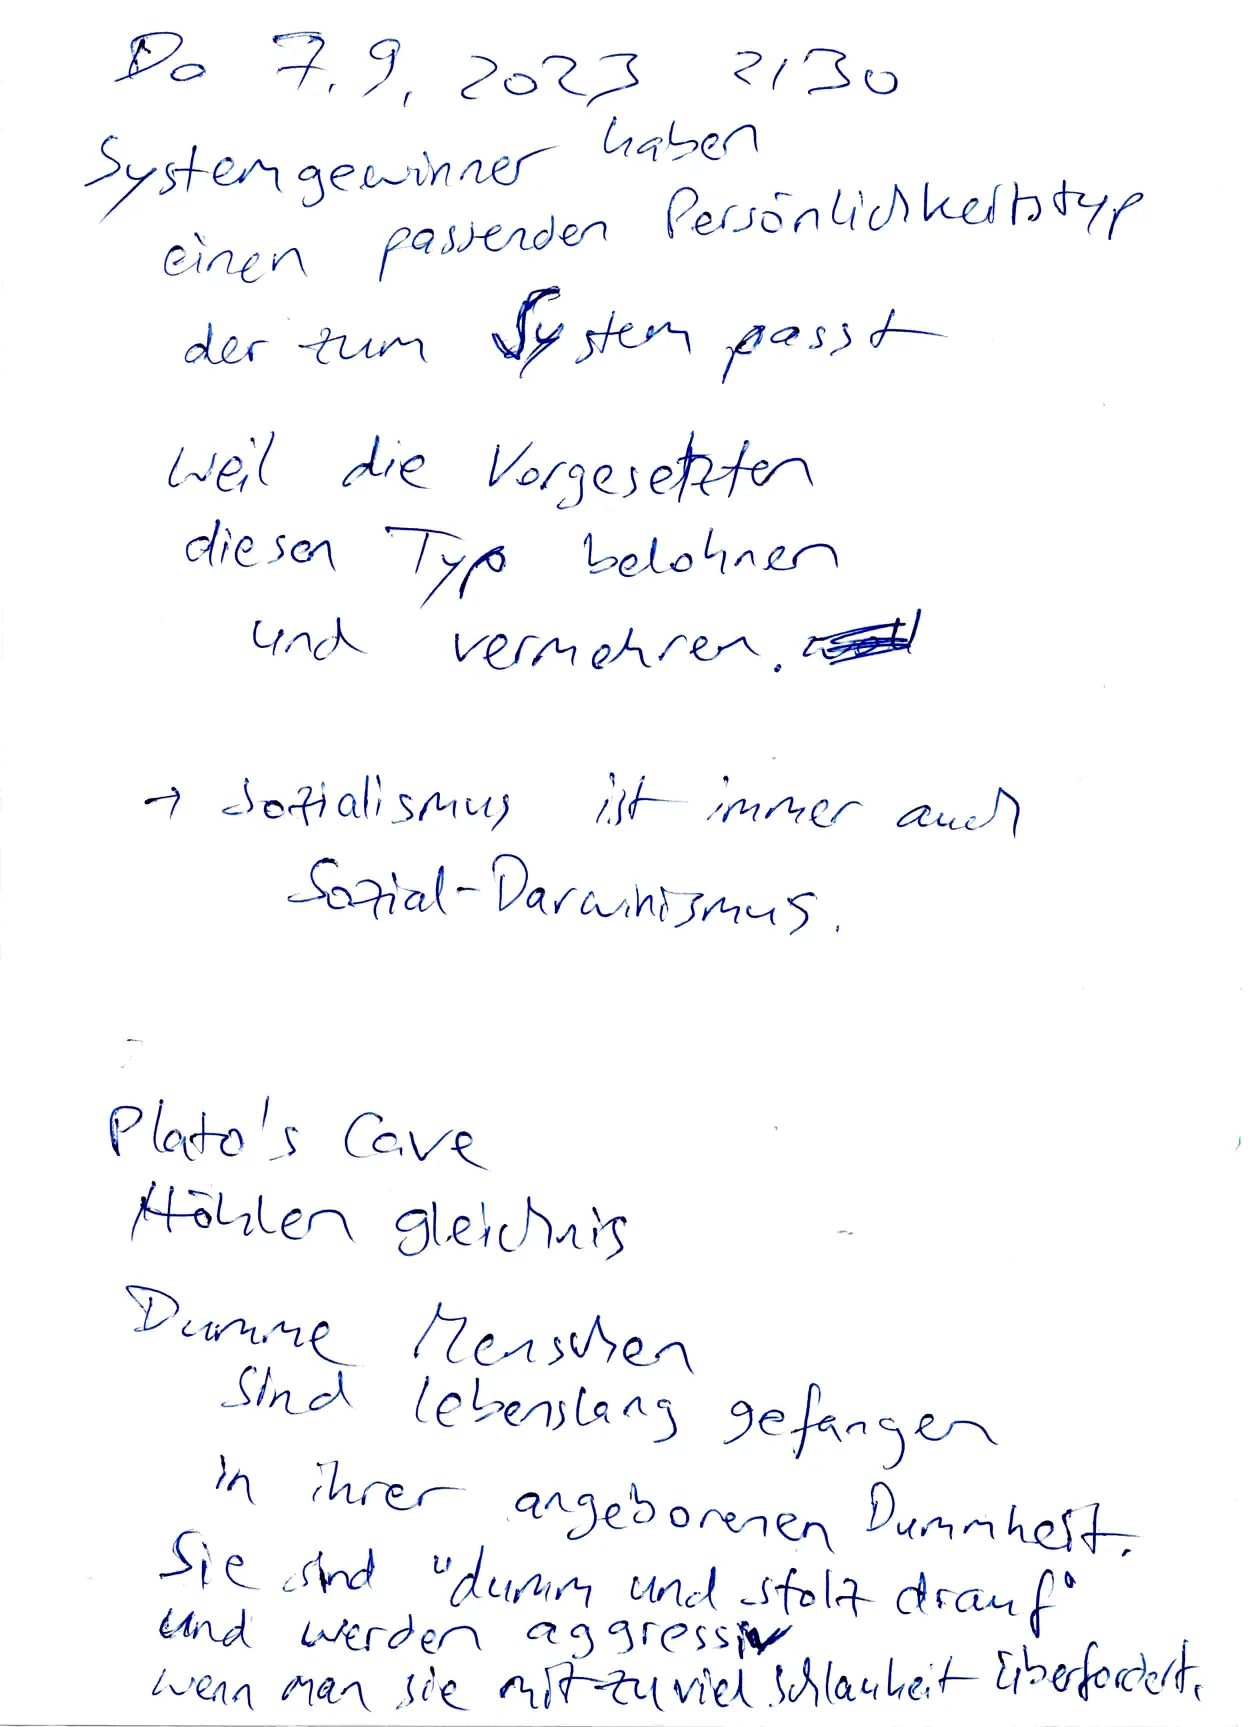 Do 7.9.2023 2130
Systemgewinner haben
einen passenden Persönlichkeitstyp
der zum System passt
weil die Vorgesetzten
diesen Typ belohnen
und vermehren.
→ Sozialismus ist immer auch
Sozial-Darwinismus.
Plato's Cave
Höhlengleichnis
Dumme Menschen
sind lebenslang gefangen
in ihrer angeborenen Dummheit.
Sie sind "dumm und stolz drauf"
und werden aggressiv
wenn man sie mit zu viel schlauheit überfordert.